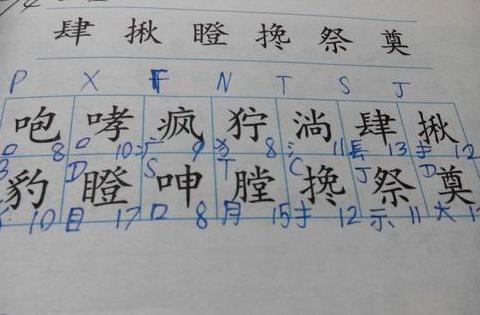 肆 揪 瞪 搀 祭 奠
P X F N T S J
咆 哮 疯 狞 淌 肆 揪
口 8 口 10 疒 9 犭 8 氵 11 镸 13 扌 12
B D S T C J D
豹 瞪 呻 膛 搀 祭 奠
10 目 17 口 8 月 15 扌 12 示 11 大